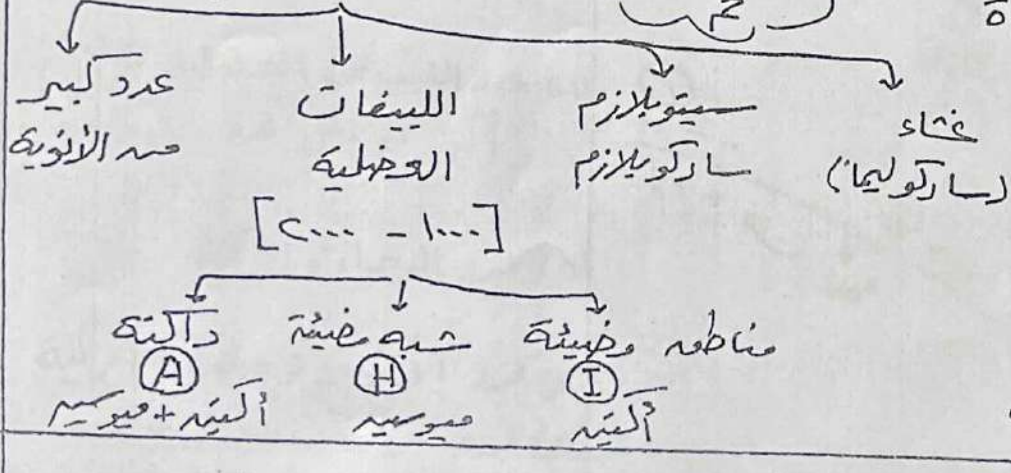 م٢
٥
غشاء
(ساركوليما)
سيتوبلازم
ساركوبلازم
الليفات
العضلية
[١٠٠٠ - ٢٠٠٠]
عدد كبير
من الأنوية
مناطق مضيئة
I
أكتين
شبه مضيئة
H
ميوسين
داكنة
A
أكتين + ميوسين